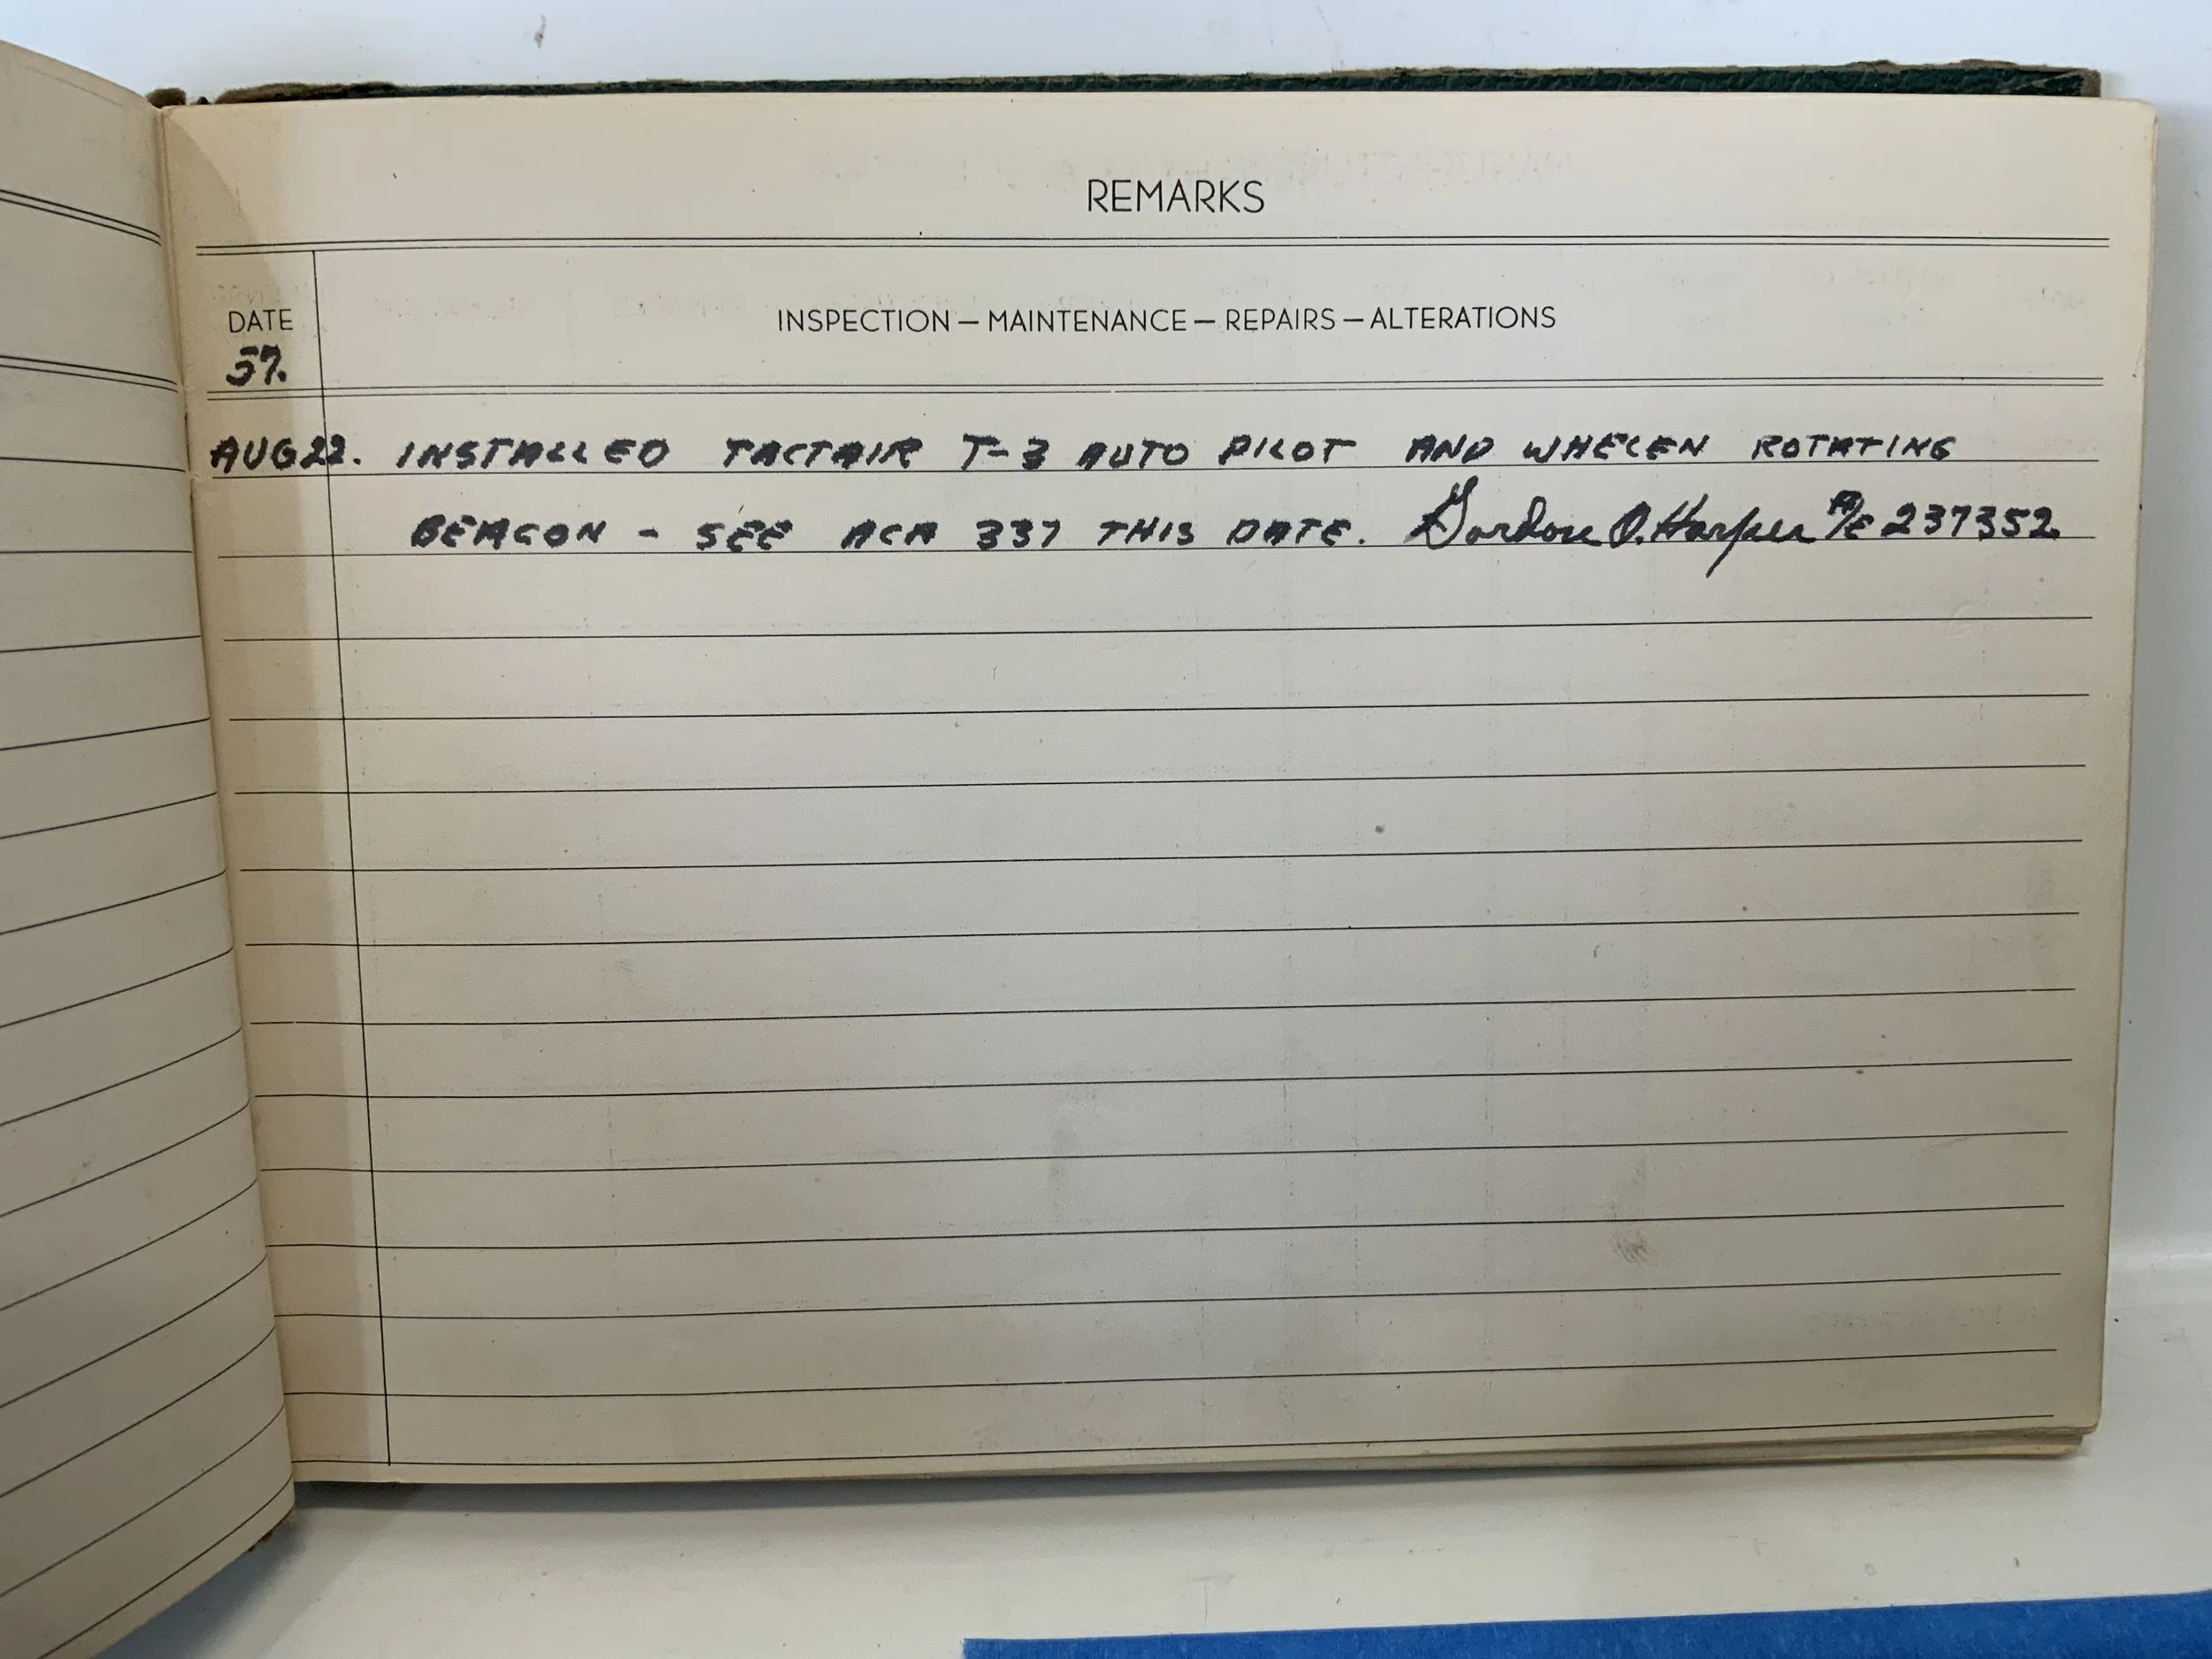 REMARKS
DATE
INSPECTION — MAINTENANCE — REPAIRS — ALTERATIONS
57.
AUG 22. INSTALLED TACTAIR T-3 AUTO PILOT AND WHELEN ROTATING
BEACON - SEE ACA 337 THIS DATE. Gordon O. Harper A/E 237352